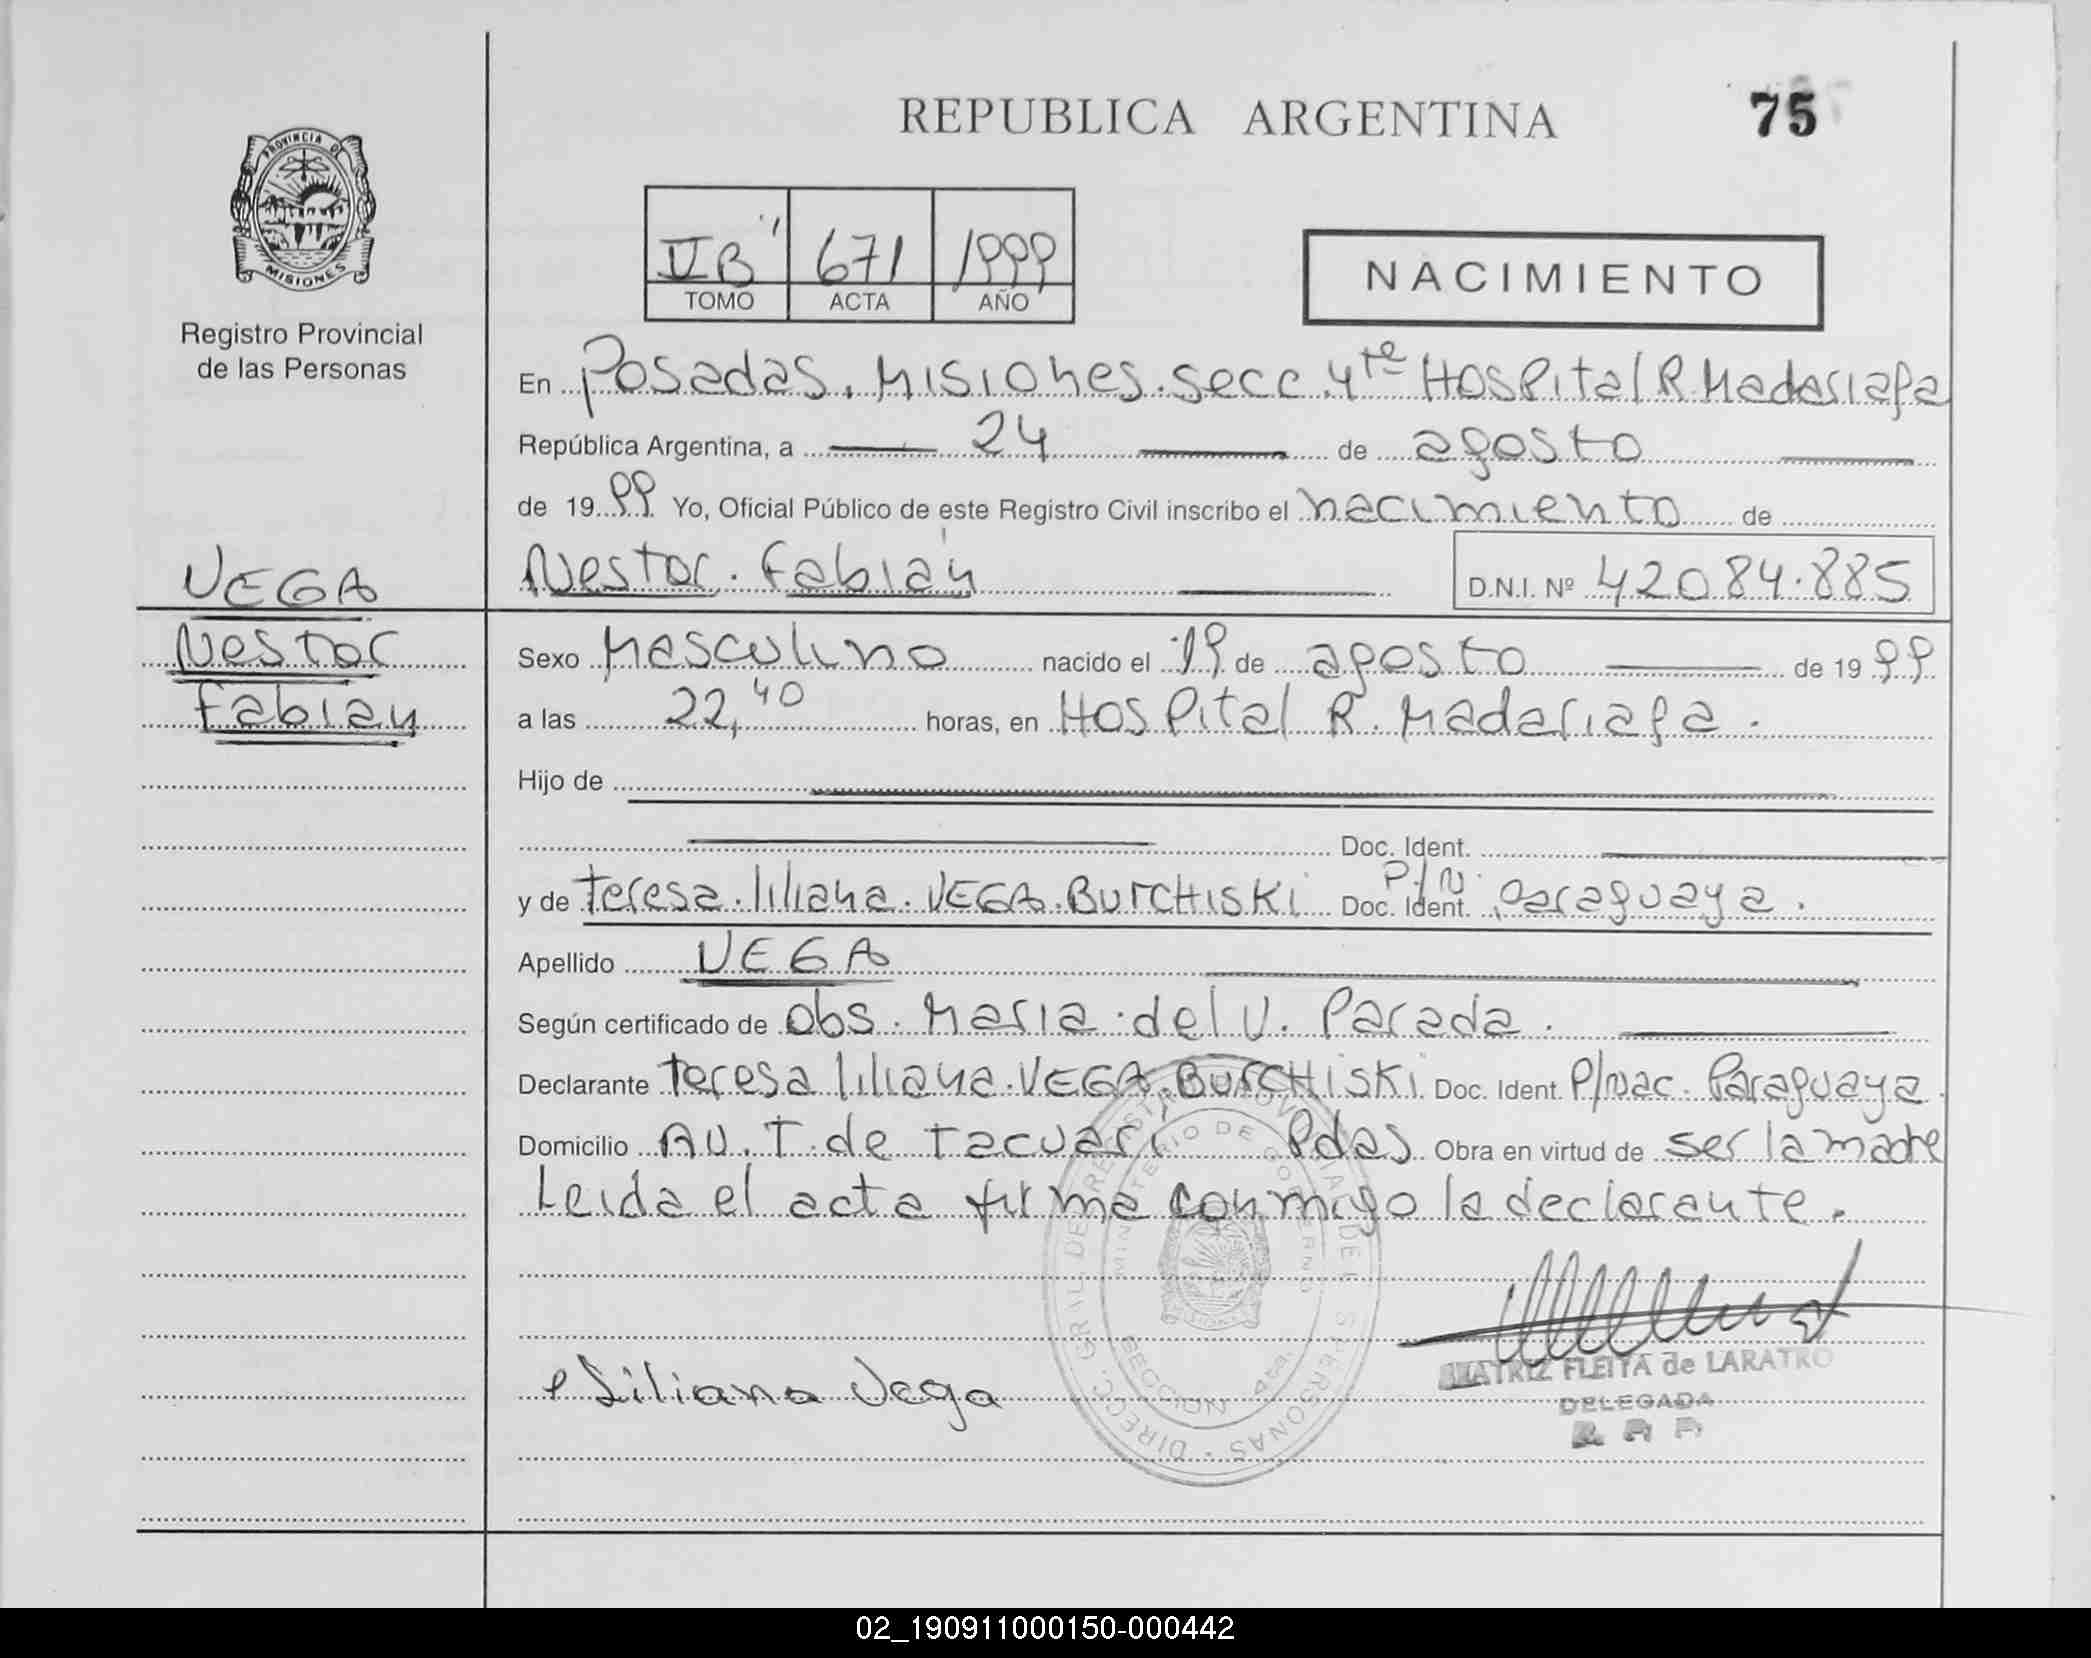 REPUBLICA ARGENTINA
75
PROVINCIA DE
MISIONES
Registro Provincial
de las Personas
VB" 671 1999
TOMO ACTA AÑO
NACIMIENTO
En Posadas. Misiones. secc. 4te Hospital R. Madariaga
República Argentina, a 24 de agosto
de 1999 Yo, Oficial Público de este Registro Civil inscribo el nacimiento de
Nestor. Fabián D.N.I. Nº 42084.885
VEGA
Nestor
Fabian
Sexo Masculino nacido el 19 de agosto de 1999
a las 22,40 horas, en Hospital R. Madariaga.
Hijo de
Doc. Ident.
y de Teresa. liliana. VEGA. BURCHISKI Doc. Ident. P/N. paraguaya.
Apellido VEGA
Según certificado de obs. Maria del V. Parada.
Declarante Teresa liliana. VEGA. BURCHISKI Doc. Ident. P/nac. Paraguaya.
Domicilio AV. T. de Tacuari Pdas Obra en virtud de ser la madre
Leida el acta firma conmigo la declarante.
DIRECC. GRAL. DE REGISTRO PROVINCIAL DE LAS PERSONAS
MINISTERIO DE GOBIERNO
SECCION 4ta.
Liliana Vega
BEATRIZ FLEITA de LARATRO
DELEGADA
R P P
02_190911000150-000442